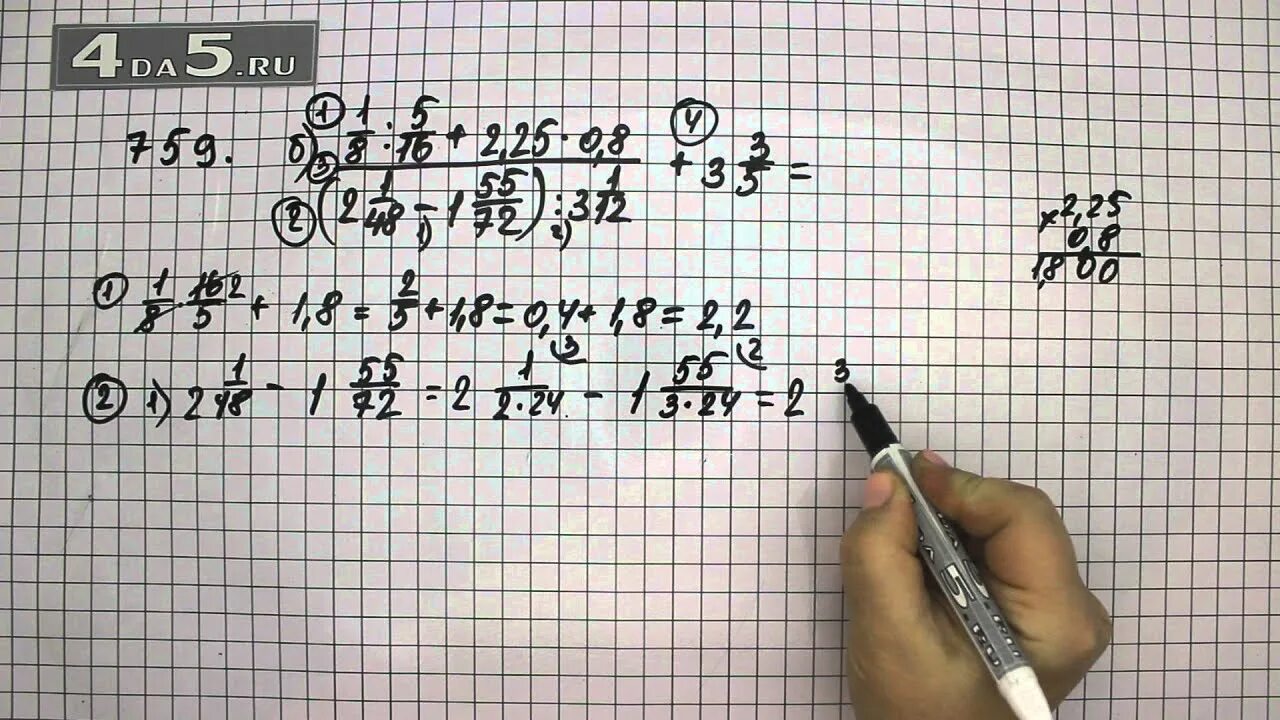 4DA5.RU
759. б) ① 1/8 : 5/16 + 2,25 · 0,8 ④
③ + 3 3/5 =
② (2 1/48 - 1 55/72) : 3 1/12
1) 2)
× 2,25
0,8
1,800
① 1/8 · 16/5 2 + 1,8 = 2/5 + 1,8 = 0,4 + 1,8 = 2,2
② 1) 2 1/48 - 1 55/72 = 2 1/2·24 3 - 1 55/3·24 2 = 2 3